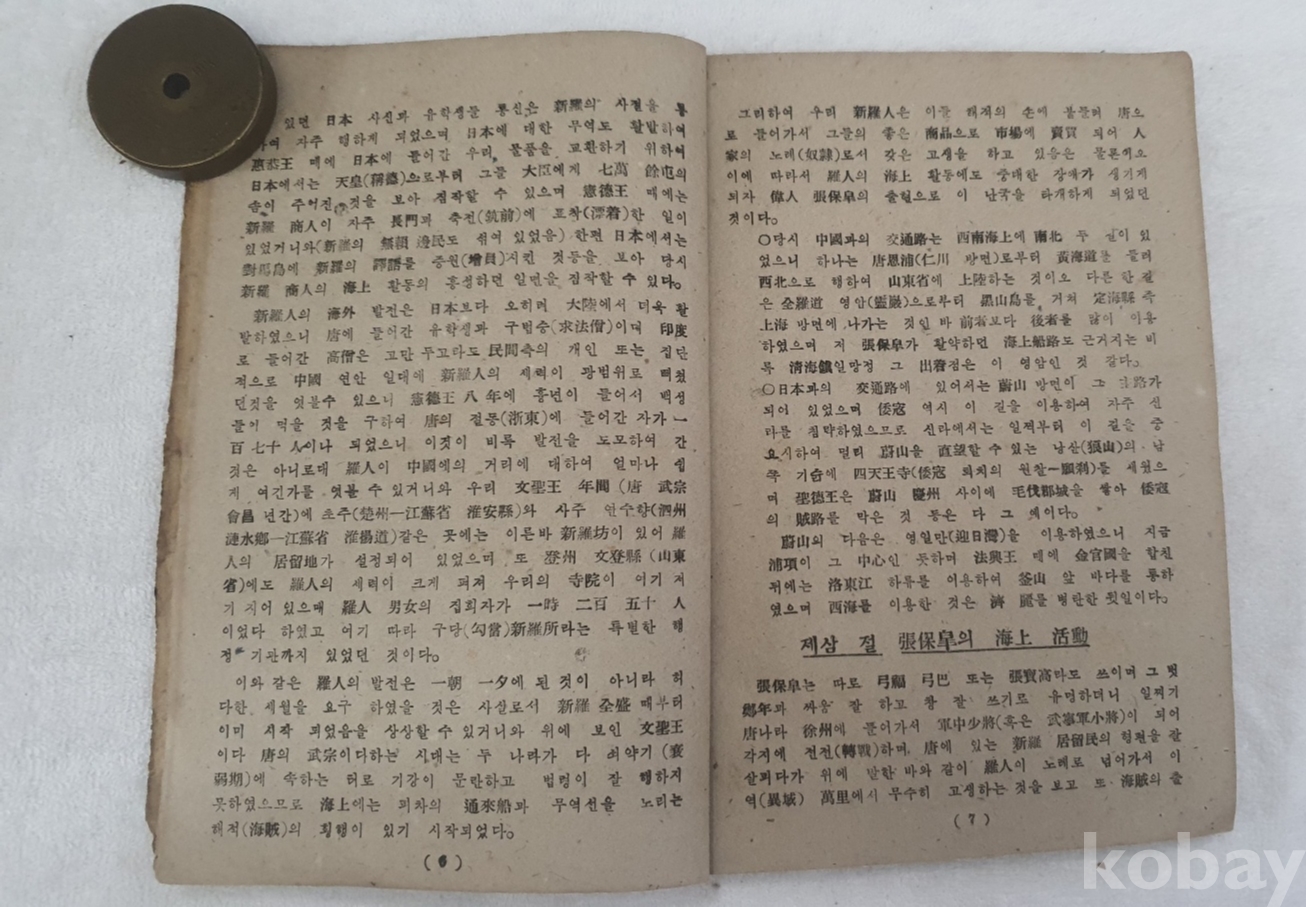 있던 日本 사신과 유학생들 통신은 新羅의 사절을 통
하여 자주 행하게 되었으며 日本에 대한 무역도 활발하여
惠恭王 때에 日本에 들어간 우리 물품을 교환하기 위하여
日本에서는 天皇(稱德)으로부터 그들 大臣에게 七萬 餘屯의
솜이 주어진 것을 보아 짐작할 수 있으며 憲德王 때에는
新羅 商人이 자주 長門과 축전(筑前)에 표착(漂着)한 일이
있었거니와(新羅의 無賴 邊民도 섞여 있었음) 한편 日本에서는
對馬島에 新羅의 譯語를 증원(增員)시킨 것등을 보아 당시
新羅 商人의 海上 활동의 흥성하던 일면을 짐작할 수 있다。
新羅人의 海外 발전은 日本보다 오히려 大陸에서 더욱 활
발하였으니 唐에 들어간 유학생과 구법승(求法僧)이며 印度
로 들어간 高僧은 고만 두고라도 民間측의 개인 또는 집단
적으로 中國 연안 일대에 新羅人의 세력이 광범위로 뻐쳤
던것을 엿볼수 있으니 憲德王 八 年에 흉년이 들어서 백성
들이 먹을 것을 구하여 唐의 절동(浙東)에 들어간 자가 一
百 七十 人이나 되었으니 이것이 비록 발전을 도모하여 간
것은 아니로대 羅人이 中國에의 거리에 대하여 얼마나 쉽
게 여긴가를 엿볼 수 있거니와 우리 文聖王 年間(唐 武宗
會昌 년간)에 초주(楚州—江蘇省 淮安縣)와 사주 연수향(泗州
漣水鄕—江蘇省 淮揚道)같은 곳에는 이른바 新羅坊이 있어 羅
人의 居留地가 설정되어 있었으며 또 登州 文登縣(山東
省)에도 羅人의 세력이 크게 퍼져 우리의 寺院이 여기 저
기 지어 있으매 羅人 男女의 집회자가 一時 二百 五十 人
이었다 하였고 여기 따라 구당(勾當)新羅所라는 특별한 행
정 기관까지 있었던 것이다。
이와 같은 羅人의 발전은 一朝 一夕에 된 것이 아니라 허
다한 세월을 요구 하였을 것은 사실로서 新羅 全盛 때부터
이미 시작 되었음을 상상할 수 있거니와 위에 보인 文聖王
이다 唐의 武宗이다하는 시대는 두 나라가 다 쇠약기(衰
弱期)에 속하는 터로 기강이 문란하고 법령이 잘 행하지
못하였으므로 海上에는 피차의 通來船과 무역선을 노리는
해적(海賊)의 횡행이 있기 시작되었다。
(6)
그리하여 우리 新羅人은 이들 해적의 손에 붙들려 唐으
로 들어가서 그들의 좋은 商品으로 市場에 賣買 되어 人
家의 노레(奴隷)로서 갖은 고생을 하고 있음은 물론히오
이에 따라서 羅人의 海上 활동에도 중대한 장애가 생기게
되자 偉人 張保皐의 출현으로 이 난국을 타개하게 되었던
것이다。
○당시 中國과의 交通路는 西南海上에 南北 두 길이 있
었으니 하나는 唐恩浦(仁川 방면)로부터 黃海道를 둘려
西北으로 행하여 山東省에 上陸하는 것이오 다른 한 길
은 全羅道 영암(靈巖)으로부터 黑山島를 거쳐 定海縣 즉
上海 방면에 나가는 것인 바 前者보다 後者를 많이 이용
하였으며 저 張保皐가 활약하던 海上船路도 근거지는 비
록 淸海鎭일망정 그 出着점은 이 영암인 것 같다。
○日本과의 交通路에 있어서는 蔚山 방면이 그 路가
되어 있었으며 倭寇 역시 이 길을 이용하여 자주 신
라를 침략하였으므로 신라에서는 일찍부터 이 길을 중
요시하여 멀리 蔚山을 直望할 수 있는 낭산(狼山)의 남
쪽 기슭에 四天王寺(倭寇 퇴치의 원찰—願刹)를 세웠으
며 聖德王은 蔚山 慶州 사이에 毛伐郡城을 쌓아 倭寇
의 賊路를 막은 것 등은 다 그 예이다。
蔚山의 다음은 영일만(迎日灣)을 이용하였으니 지금
浦項이 그 中心인 듯하며 法興王 때에 金官國을 합친
뒤에는 洛東江 하류를 이용하여 釜山 앞 바다를 통하
였으며 西海를 이용한 것은 濟 麗를 병탄한 뒷일이다。
제삼 절 張保皐의 海上 活動
張保皐는 따로 弓福 弓巴 또는 張寶高라도 쓰이며 그 벗
鄭年과 싸움 잘 하고 창 잘 쓰기로 유명하더니 일찌기
唐나라 徐州에 들어가서 軍中少將(혹은 武寧軍小將)이 되어
각지에 전전(轉戰)하며, 唐에 있는 新羅 居留民의 형편을 잘
살피다가 위에 말한 바와 같이 羅人이 노레로 넘어가서 이
역(異域) 萬里에서 무수히 고생하는 것을 보고 또 海賊의 출
(7)
kobay